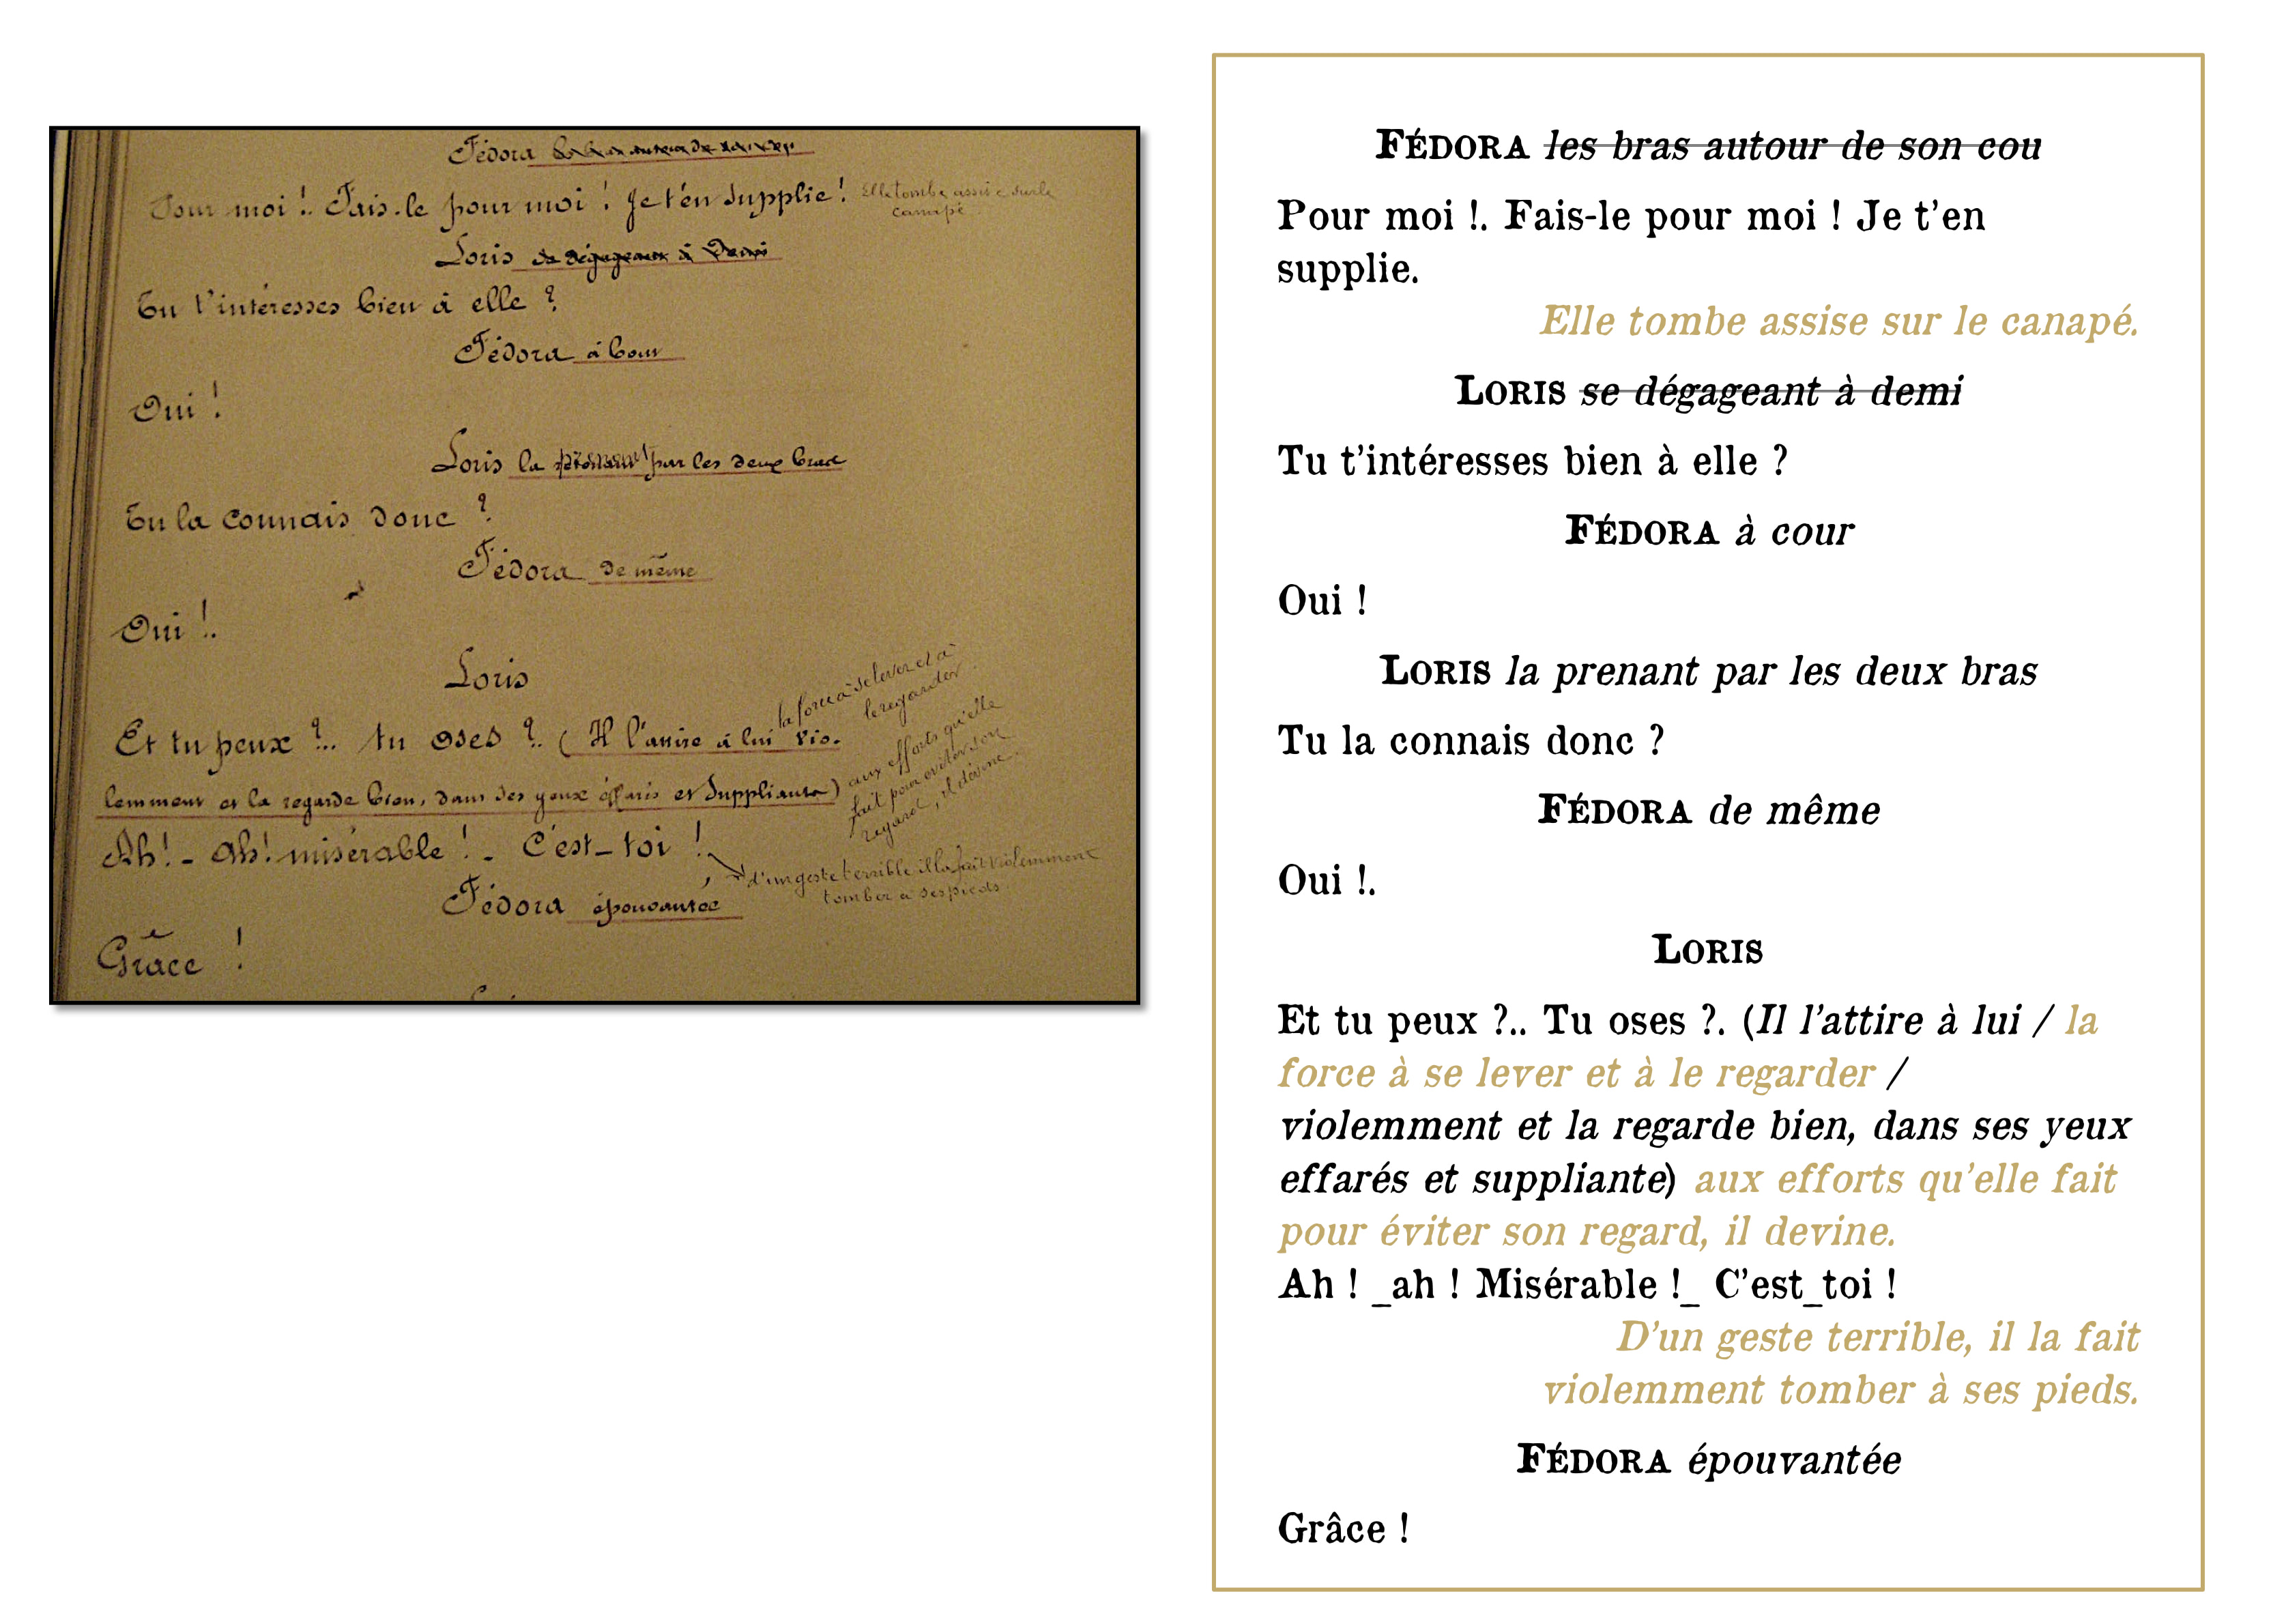 Fédora
Pour moi !. Fais-le pour moi ! Je t'en supplie ! Elle tombe assise sur le
canapé.
Loris se dégageant à demi
Tu t'intéresses bien à elle ?
Fédora à cour
Oui !
Loris la par les deux bras
Tu la connais donc ?
Fédora de même
Oui !.
Loris
la force à se lever et à
le regarder
Et tu peux ?.. tu oses ?.. (Il l'attire à lui vio-
lemment et la regarde bien, dans ses yeux effarés et suppliante)
aux efforts qu'elle
fait pour eviter son
regard, il devine.
Ah ! _ ah ! misérable ! _ C'est_toi !
d'un geste terrible il la fait violemment
tomber à ses pieds.
Fédora épouvantée
Grâce !
FÉDORA les bras autour de son cou
Pour moi !. Fais-le pour moi ! Je t'en
supplie.
Elle tombe assise sur le canapé.
LORIS se dégageant à demi
Tu t'intéresses bien à elle ?
FÉDORA à cour
Oui !
LORIS la prenant par les deux bras
Tu la connais donc ?
FÉDORA de même
Oui !.
LORIS
Et tu peux ?.. Tu oses ?. (Il l'attire à lui / la
force à se lever et à le regarder /
violemment et la regarde bien, dans ses yeux
effarés et suppliante) aux efforts qu'elle fait
pour éviter son regard, il devine.
Ah ! _ah ! Misérable !_ C'est_toi !
D'un geste terrible, il la fait
violemment tomber à ses pieds.
FÉDORA épouvantée
Grâce !